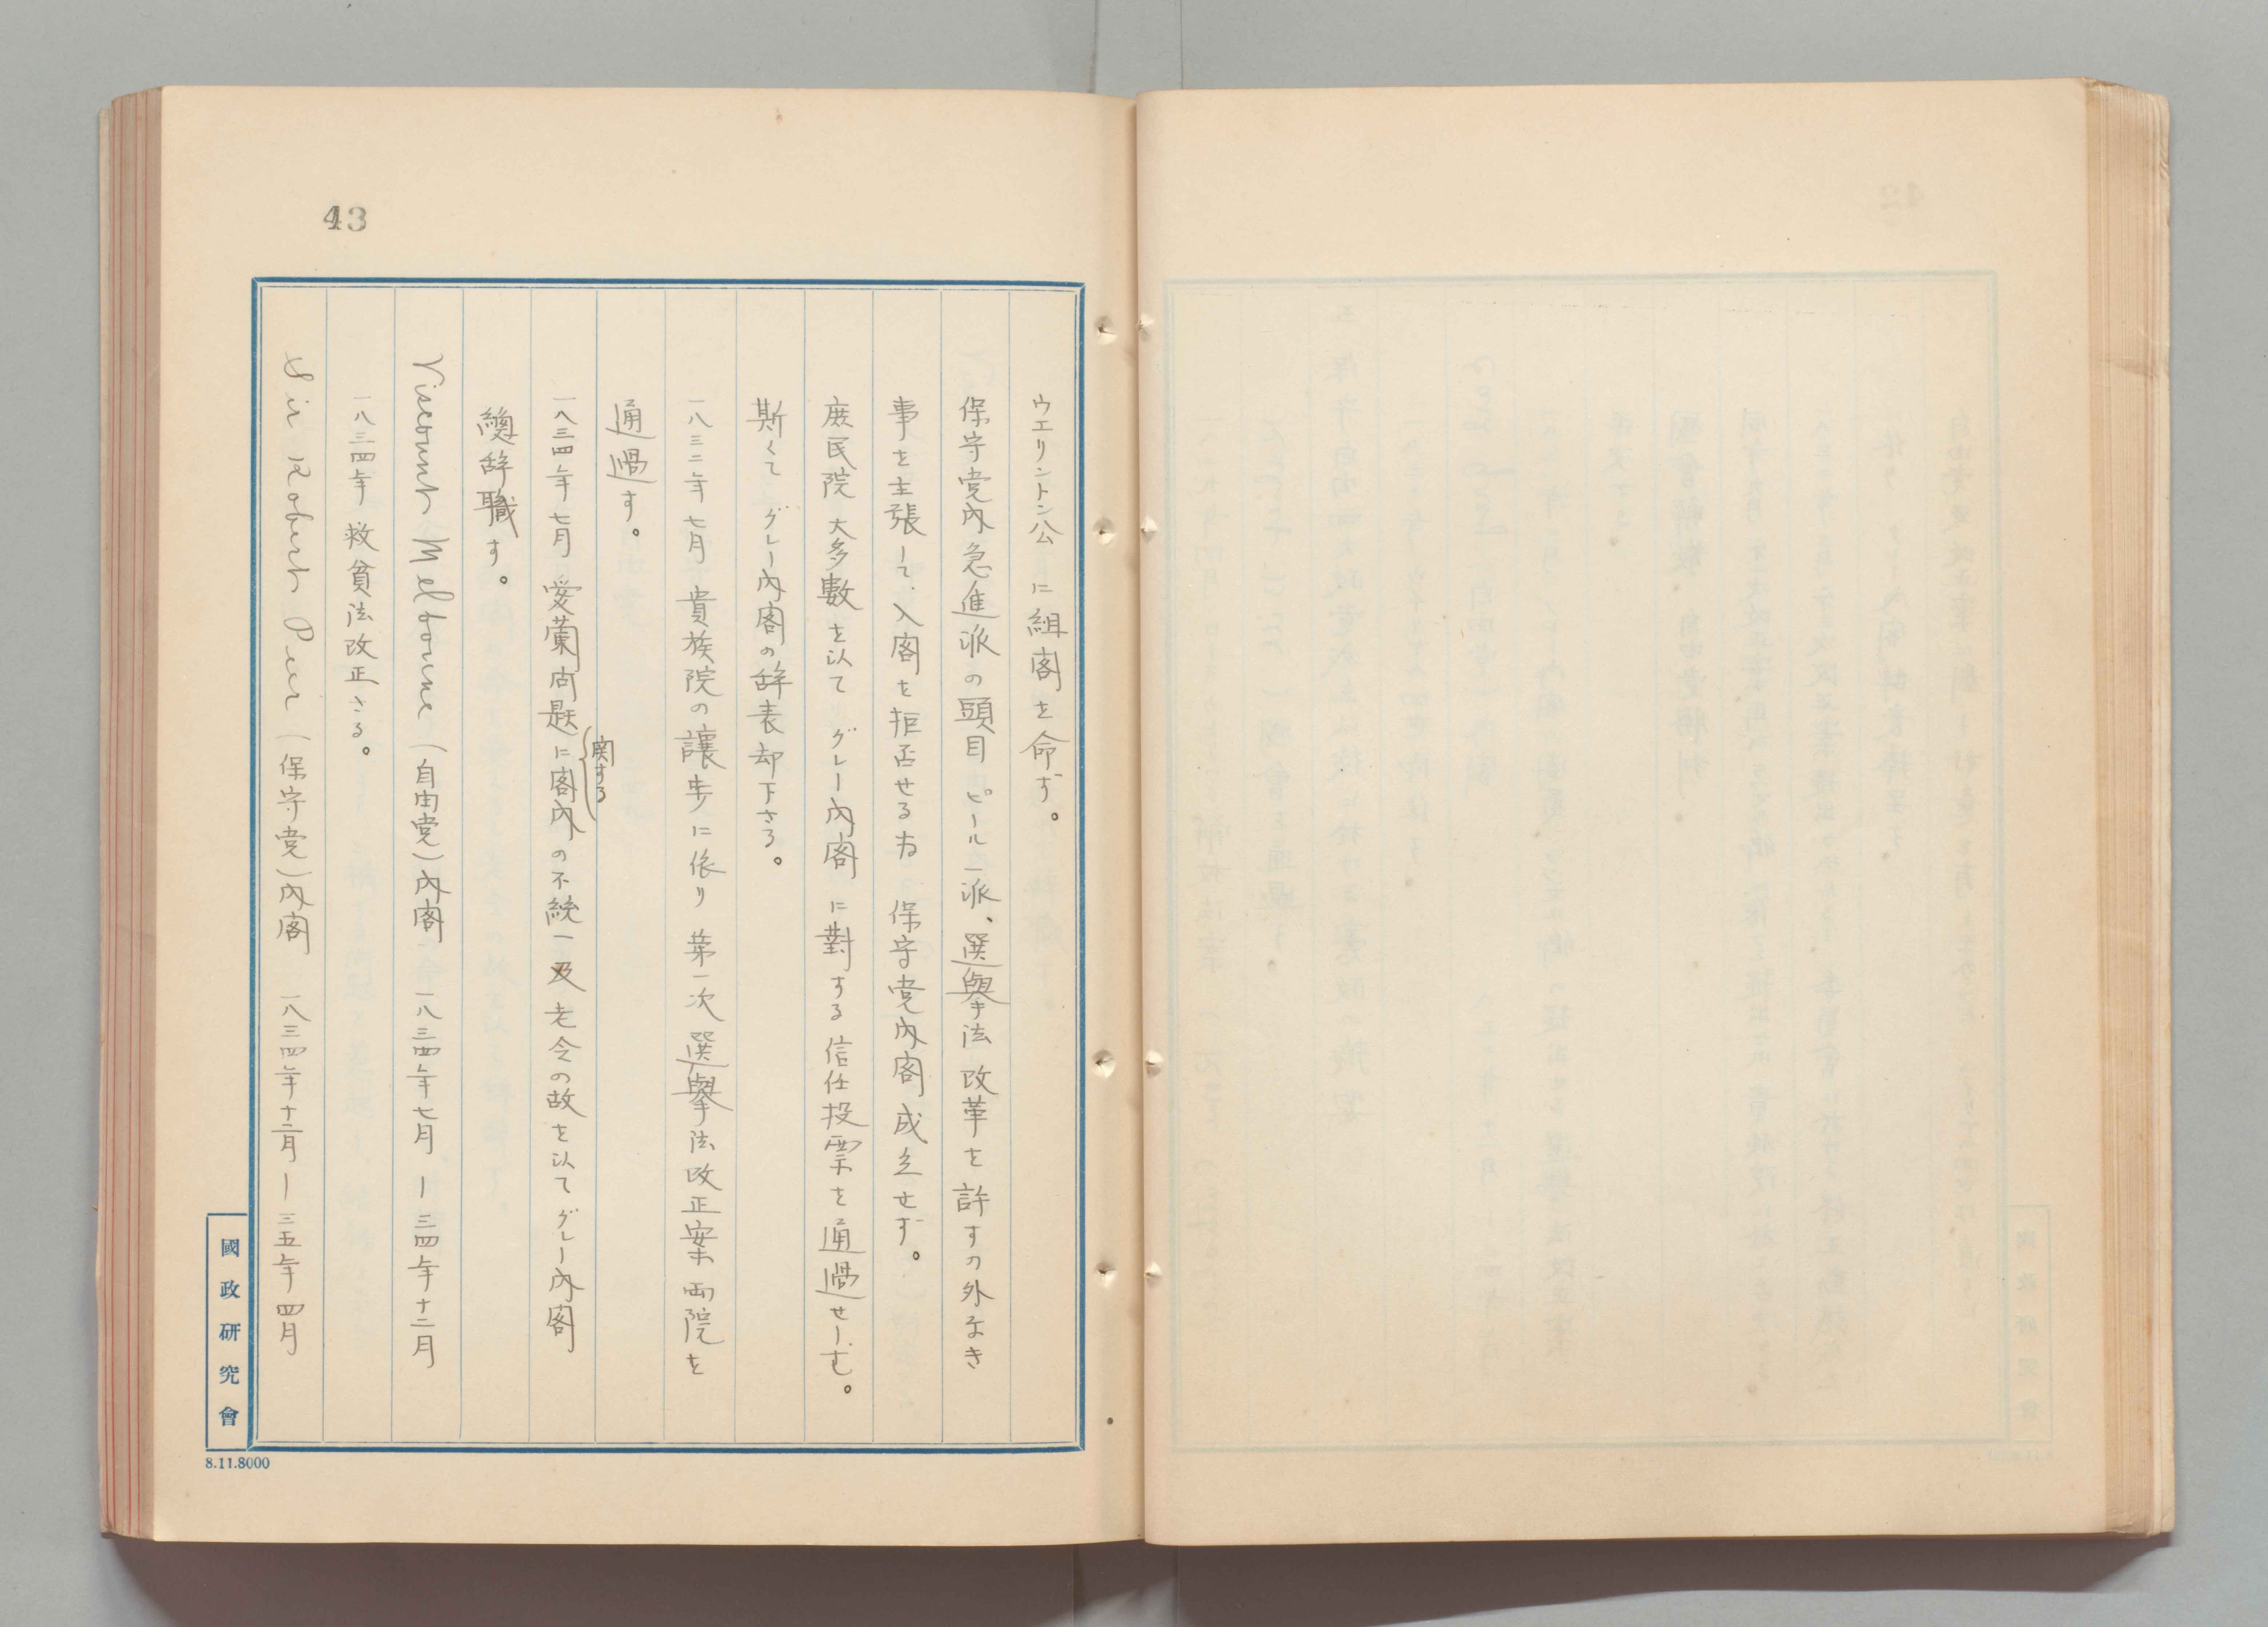 43
ウエリントン公に組閣を命ず。
保守党內急進派の頭目ピール一派、選擧法改革を許すの外なき
事を主張して、入閣を拒否せる為保守党內閣成立せず。
庶民院大多數を以てグレー內閣に對する信任投票を通過せしむ。
斯くてグレー內閣の辞表却下さる。
一八三二年七月貴族院の讓歩に依り第一次選擧法改正案両院を
通過す。
一八三四年七月愛蘭問題に関する閣內の不統一及老令の故を以てグレー內閣
總辞職す。
Viscount Melbourne (自由党)內閣 一八三四年七月ー三四年十二月
一八三四年救貧法改正さる。
Sir Robert Peel (保守党)內閣 一八三四年十二月ー三五年四月
國政研究會
8.11.8000